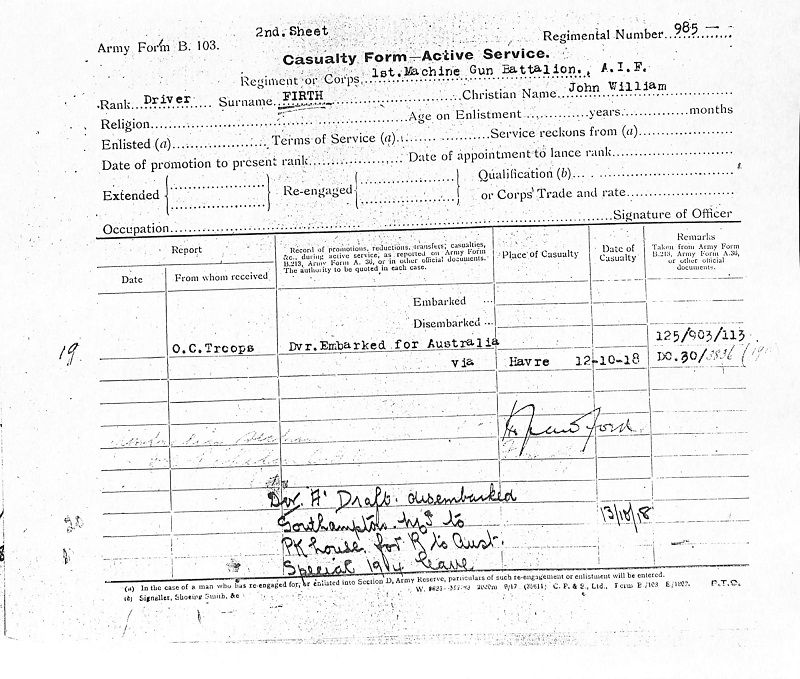 2nd. Sheet
Army Form B. 103.
Regimental Number 985 —
Casualty Form—Active Service.
Regiment or Corps 1st.Machine Gun Battalion., A.I.F.
Rank Driver Surname FIRTH Christian Name John William
Religion Age on Enlistment years months
Enlisted (a) Terms of Service (a) Service reckons from (a)
Date of promotion to present rank Date of appointment to lance rank
Extended Re-engaged Qualification (b)
or Corps' Trade and rate
Occupation Signature of Officer
Report
Date
From whom received
Record of promotions, reductions, transfers, casualties,
&c., during active service, as reported on Army Form
B.213, Army Form A. 36, or in other official documents.
The authority to be quoted in each case.
Place of Casualty
Date of
Casualty
Remarks
Taken from Army Form
B.213, Army Form A.36,
or other official
documents.
Embarked ...
Disembarked ...
19.
O.C.Troops Dvr.Embarked for Australia 125/903/113
via Havre 12-10-18 DO.30/
Dvr 'A' Draft. disembarked
Southampton to 13/10/18
PK house for R to Aust.
Special 1914 leave
(a) In the case of a man who has re-engaged for, or enlisted into Section D, Army Reserve, particulars of such re-engagement or enlistment will be entered.
(b) Signaller, Shoeing Smith, &c
P.T.O.